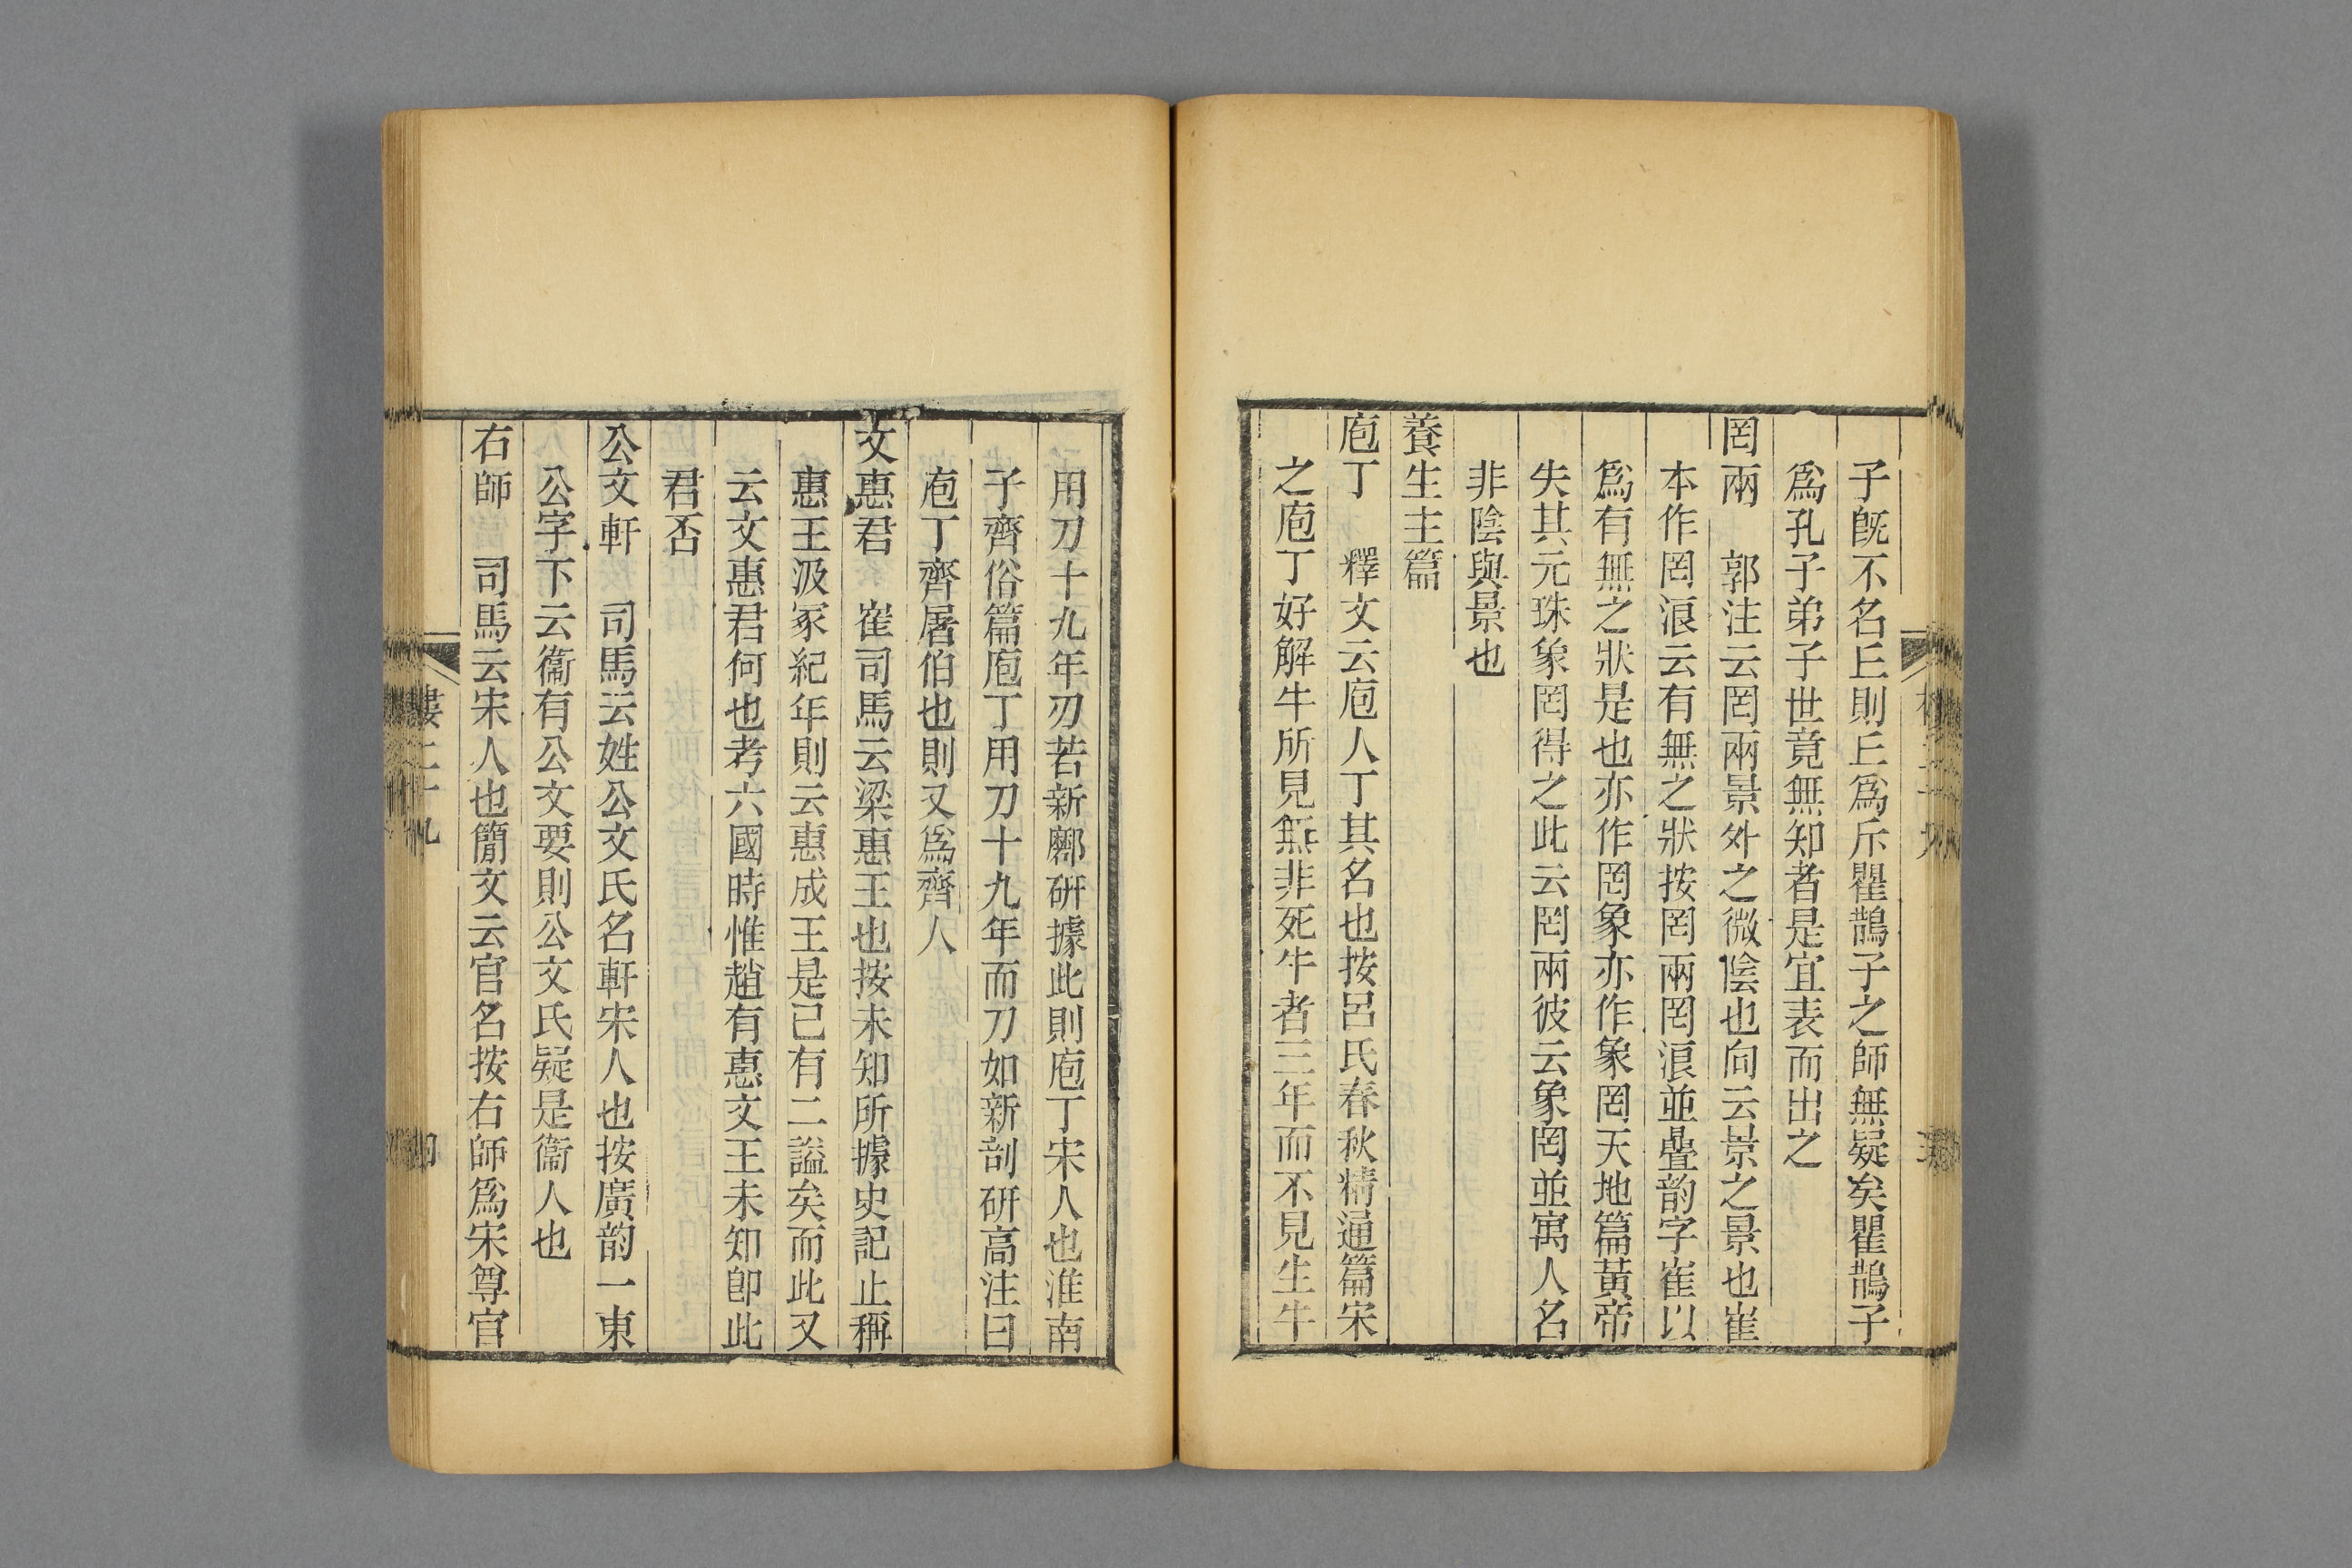 子旣不名丘則丘爲斥瞿鵲子之師無疑矣瞿鵲子
爲孔子弟子世竟無知者是宜表而出之
罔兩　郭注云罔兩景外之微陰也向云景之景也崔
本作罔浪云有無之狀按罔兩罔浪並疊韵字崔以
爲有無之狀是也亦作罔象亦作象罔天地篇黃帝
失其元珠象罔得之此云罔兩彼云象罔並寓人名
非陰與景也
養生主篇
庖丁　釋文云庖人丁其名也按呂氏春秋精通篇宋
之庖丁好解牛所見無非死牛者三年而不見生牛
用刀十九年刃若新䣜硏據此則庖丁宋人也淮南
子齊俗篇庖丁用刀十九年而刀如新剖硏高注曰
庖丁齊屠伯也則又爲齊人
文惠君　崔司馬云梁惠王也按未知所據史記止稱
惠王汲冢紀年則云惠成王是已有二謚矣而此又
云文惠君何也考六國時惟趙有惠文王未知卽此
君否
公文軒　司馬云姓公文氏名軒宋人也按廣韵一東
公字下云衞有公文要則公文氏疑是衞人也
右師　司馬云宋人也簡文云官名按右師爲宋尊官